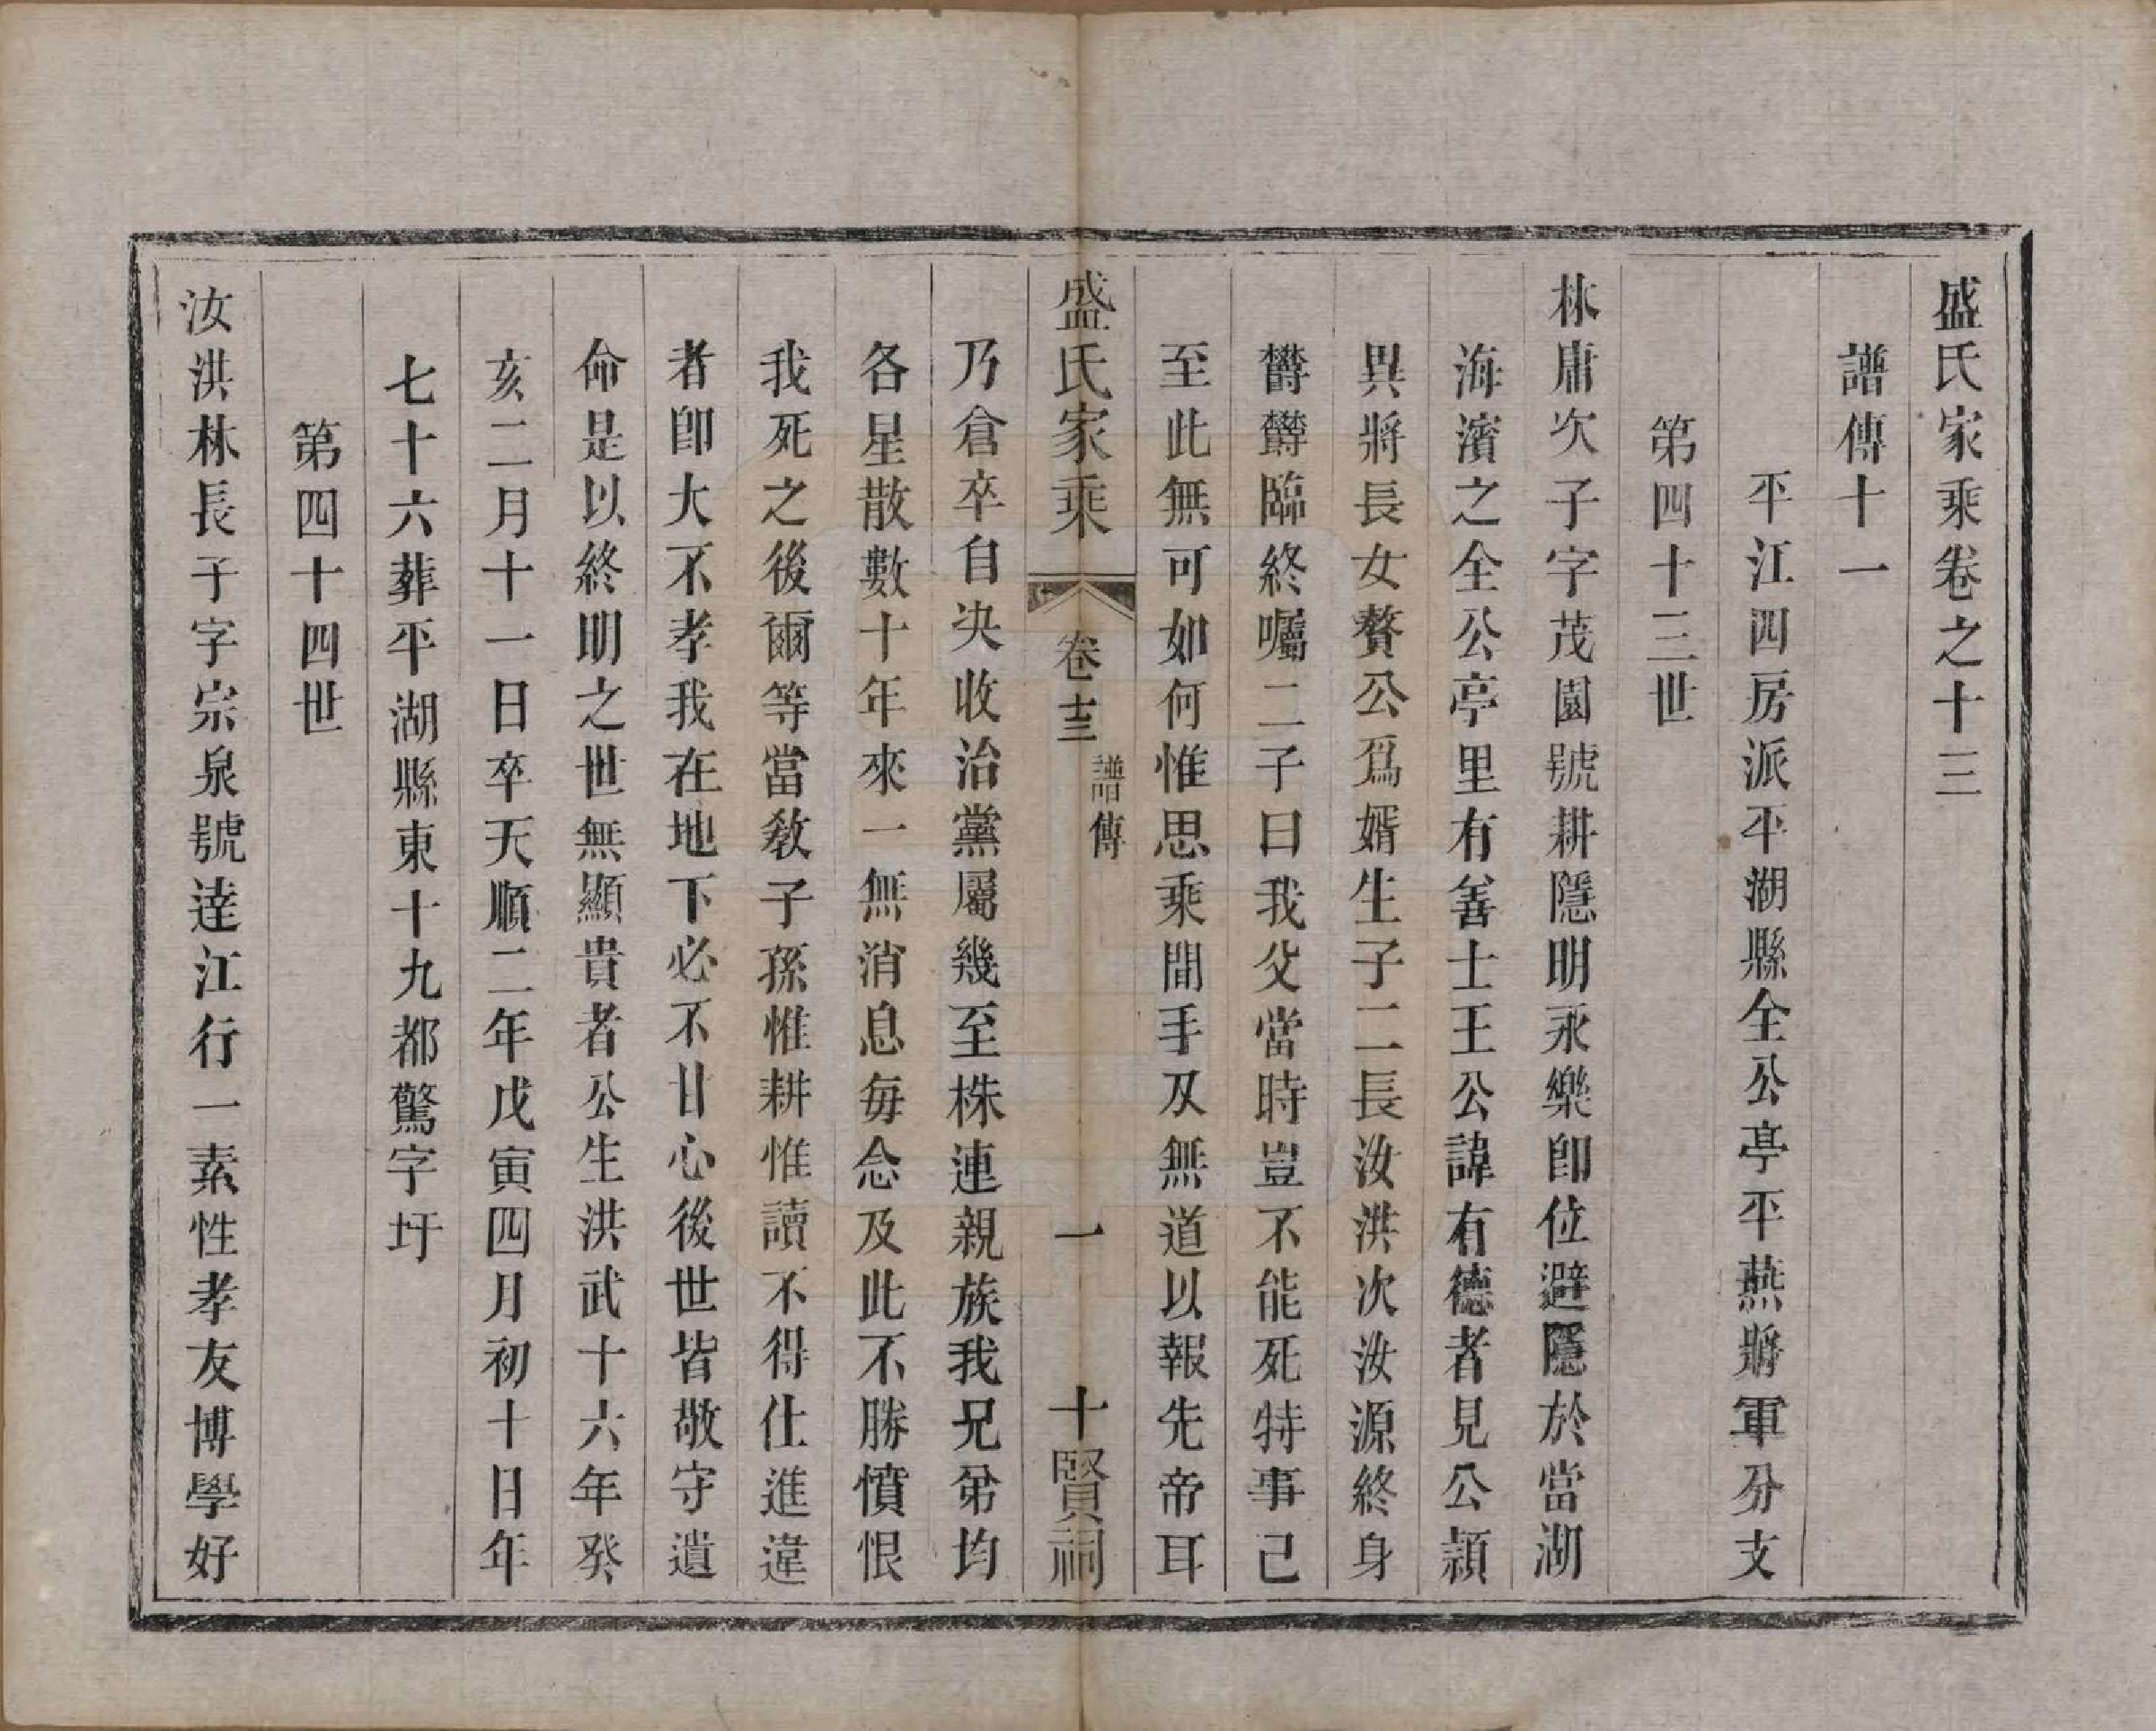 盛氏家乘卷之十三
譜傳十一
平江四房派平湖縣全公亭平燕將軍分支
第四十三世
林庸次子字茂園號耕隱明永樂卽位避隱於當湖
海濱之全公亭里有善士王公諱有德者見公穎
異將長女贅公爲婿生子二長汝洪次汝源終身
欝欝臨終囑二子曰我父當時豈不能死特事已
至此無可如何惟思乘間手刃無道以報先帝耳
盛氏家乘
卷十三
譜傳
一
十賢祠
乃倉卒自决收治黨屬幾至株連親族我兄弟均
各星散數十年來一無消息每念及此不勝憤恨
我死之後爾等當敎子孫惟耕惟讀不得仕進違
者卽大不孝我在地下必不甘心後世皆敬守遺
命是以終明之世無顯貴者公生洪武十六年癸
亥二月十一日卒天順二年戊寅四月初十日年
七十六葬平湖縣東十九都驚字圩
第四十四世
汝洪林長子字宗泉號達江行一素性孝友博學好